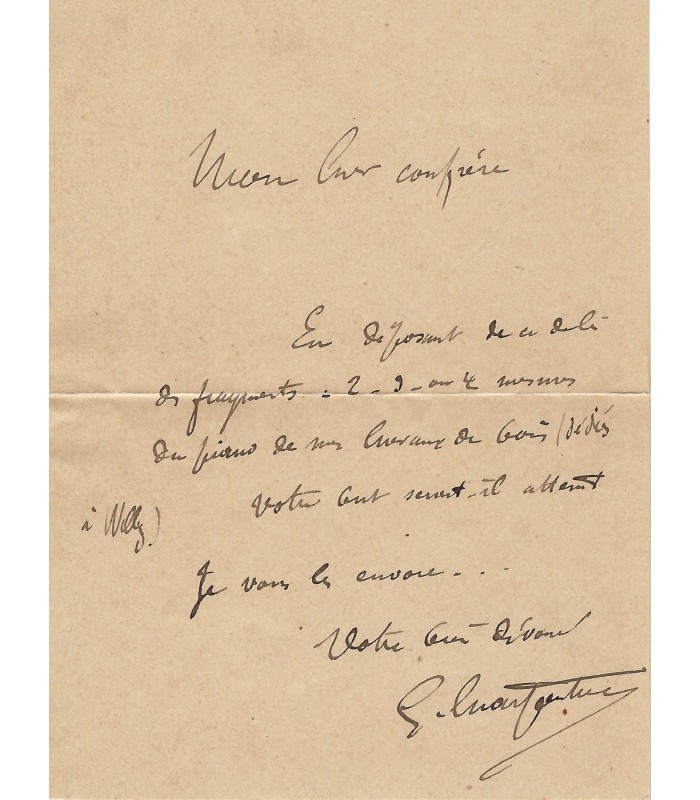 Mon cher confrère
En déposant de ci de là
des fragments - 2 - 3 - ou 4 mesures
du piano de mes chevaux de bois (dédiés
à Willy)
votre but serait-il atteint
Je vous les envoie...
Votre bien dévoué
G. Charpentier